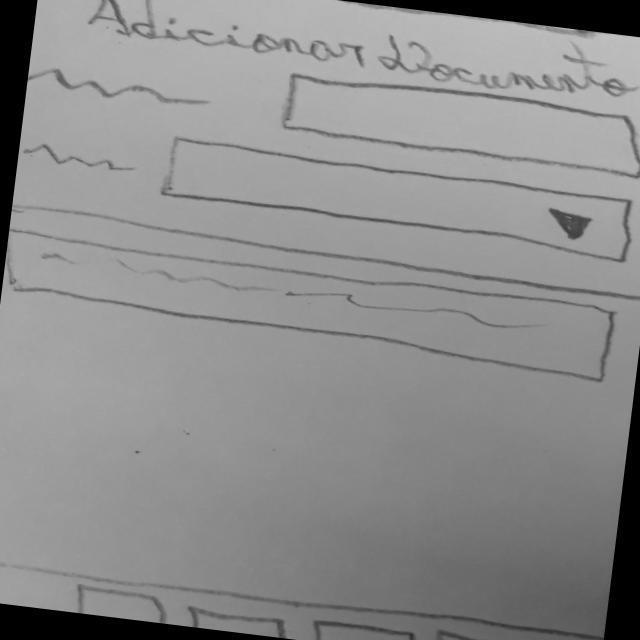 Adicionar Documento